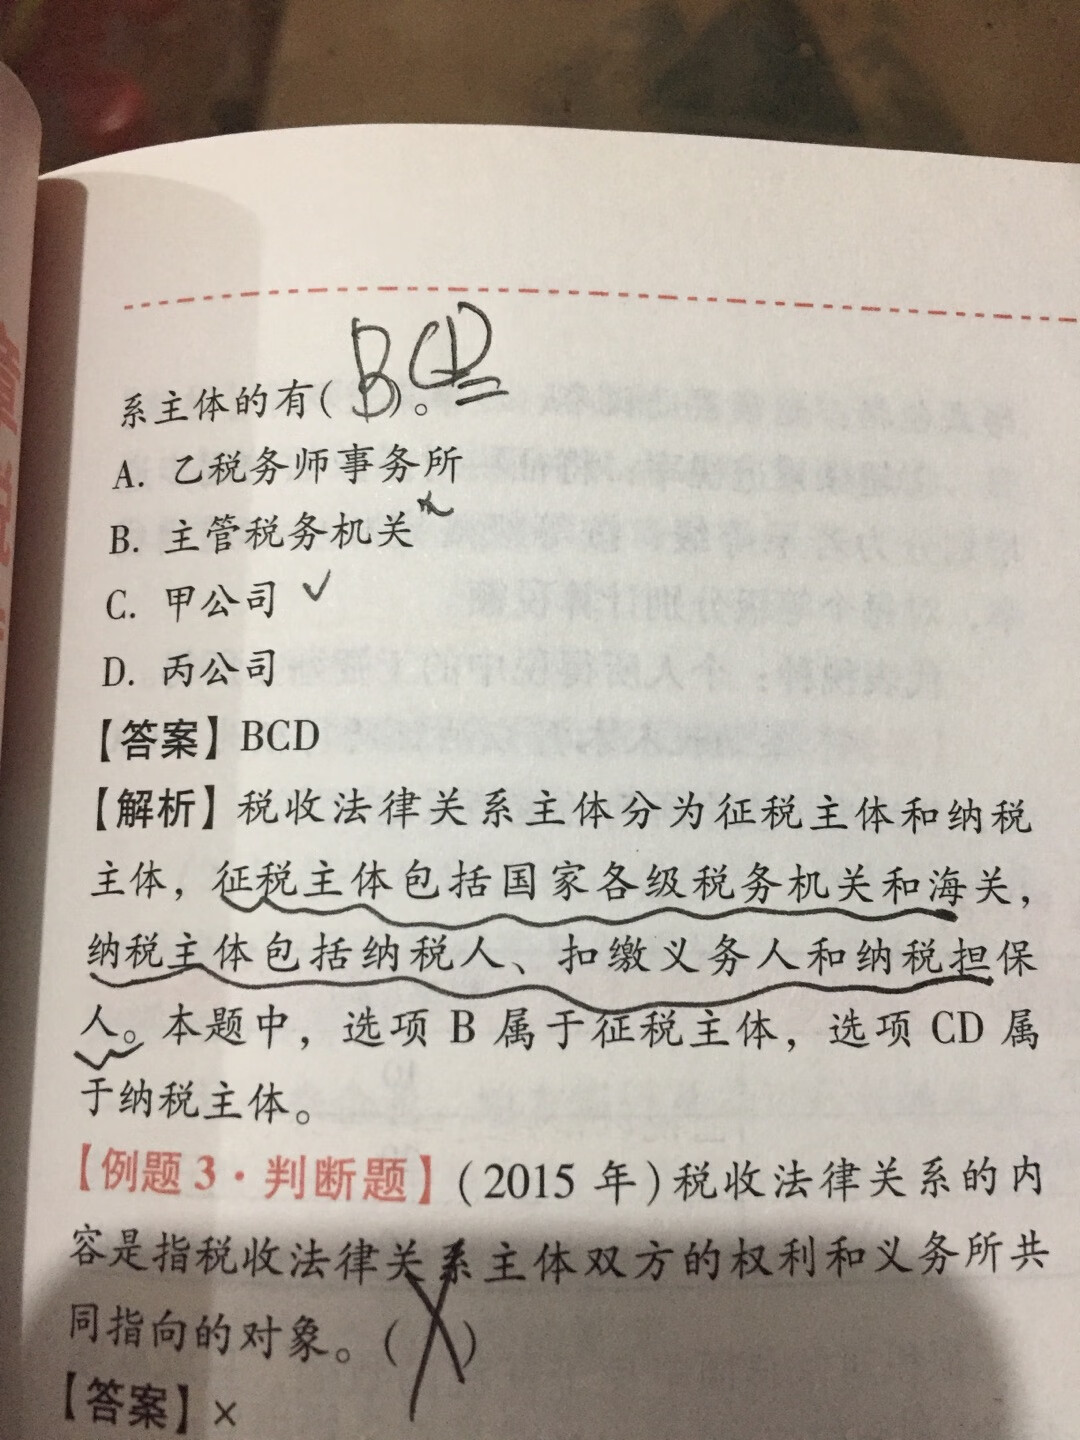 系主体的有( BCD )。
A. 乙税务师事务所
B. 主管税务机关
C. 甲公司 ✓
D. 丙公司
【答案】BCD
【解析】税收法律关系主体分为征税主体和纳税
主体，征税主体包括国家各级税务机关和海关，
纳税主体包括纳税人、扣缴义务人和纳税担保
人。本题中，选项 B 属于征税主体，选项 CD 属
于纳税主体。
【例题 3·判断题】(2015 年)税收法律关系的内
容是指税收法律关系主体双方的权利和义务所共
同指向的对象。( X )
【答案】×